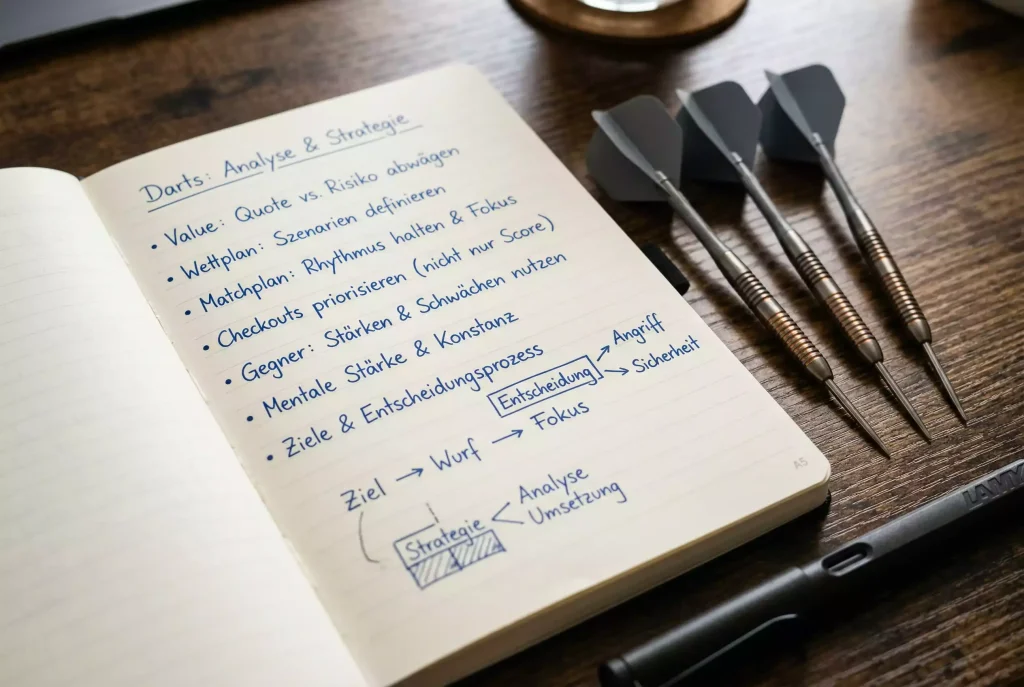 Darts: Analyse & Strategie
• Value: Quote vs. Risiko abwägen
• Wettplan: Szenarien definieren
• Matchplan: Rhythmus halten & Fokus
• Checkouts priorisieren (nicht nur Score)
• Gegner: Stärken & Schwächen nutzen
• Mentale Stärke & Konstanz
• Ziele & Entscheidungsprozess
Entscheidung
Angriff
Sicherheit
Ziel → Wurf → Fokus
Strategie
Analyse
Umsetzung
A5
LAMY